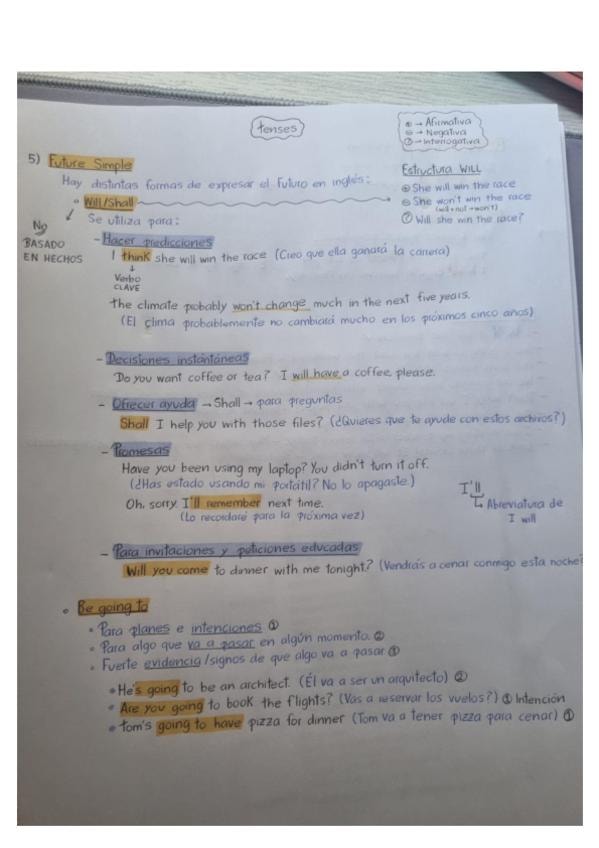 tenses
⊕ → Afirmativa
⊖ → Negativa
? → Interrogativa
5) Future Simple
Hay distintas formas de expresar el futuro en inglés:
Estructura WILL
⊕ She will win the race
⊖ She won't win the race
(will + not → won't)
? Will she win the race?
• Will/Shall
No BASADO EN HECHOS
Se utiliza para:
- Hacer predicciones
I think she will win the race (Creo que ella ganará la carrera)
↓
Verbo
CLAVE
the climate probably won't change much in the next five years.
(El clima probablemente no cambiará mucho en los próximos cinco años)
- Decisiones instantáneas
Do you want coffee or tea? I will have a coffee, please.
- Ofrecer ayuda → Shall → para preguntas
Shall I help you with those files? (¿Quieres que te ayude con estos archivos?)
- Promesas
Have you been using my laptop? You didn't turn it off.
(¿Has estado usando mi portátil? No lo apagaste.)
Oh, sorry. I'll remember next time.
(Lo recordaré para la próxima vez)
I'll
↳ Abreviatura de
I will
- Para invitaciones y peticiones educadas
Will you come to dinner with me tonight? (Vendrás a cenar conmigo esta noche?
• Be going to
• Para planes e intenciones ①
• Para algo que va a pasar en algún momento. ②
• Fuerte evidencia/signos de que algo va a pasar
• He's going to be an architect. (Él va a ser un arquitecto) ②
• Are you going to book the flights? (Vas a reservar los vuelos?) ① Intención
• Tom's going to have pizza for dinner (Tom va a tener pizza para cenar) ①